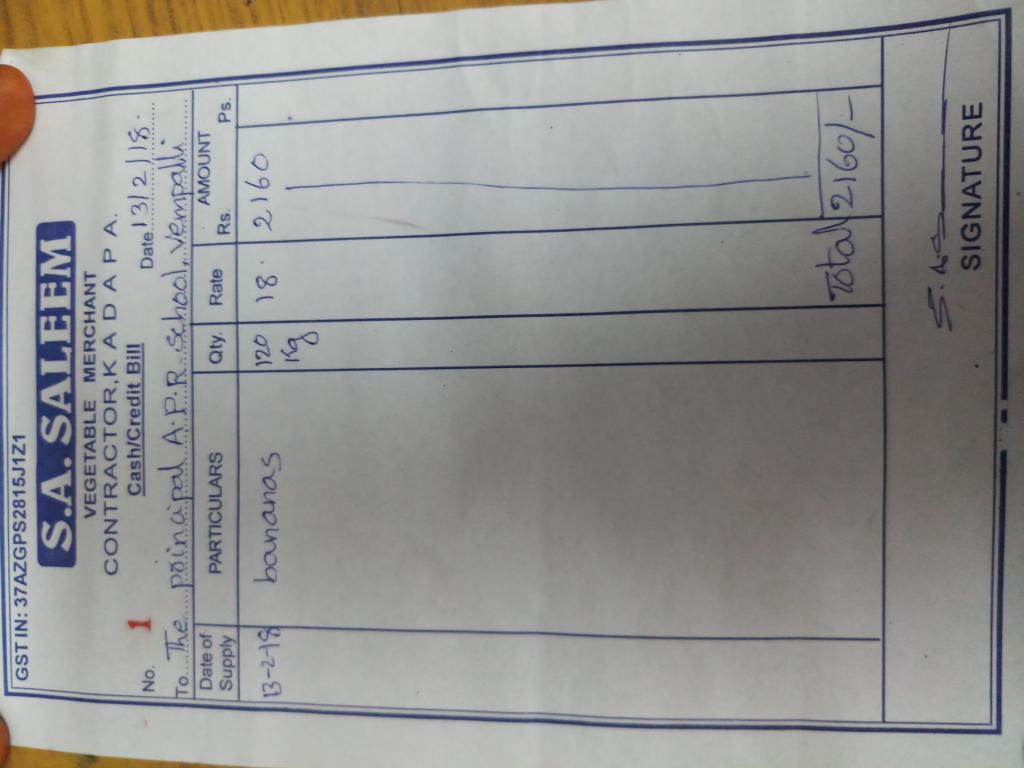 GST IN: 37AZGPS2815J1Z1
S.A. SALEEM
VEGETABLE MERCHANT
CONTRACTOR, K A D A P A.
Cash/Credit Bill
No. 1 Date 13/2/18.
To. The poincipal A.P.R. School, Vempalli
Date of Supply PARTICULARS Qty. Rate AMOUNT Rs. Ps.
13-2-18 bananas 120 18. 2160
Kg
Total 2160/-
SIGNATURE